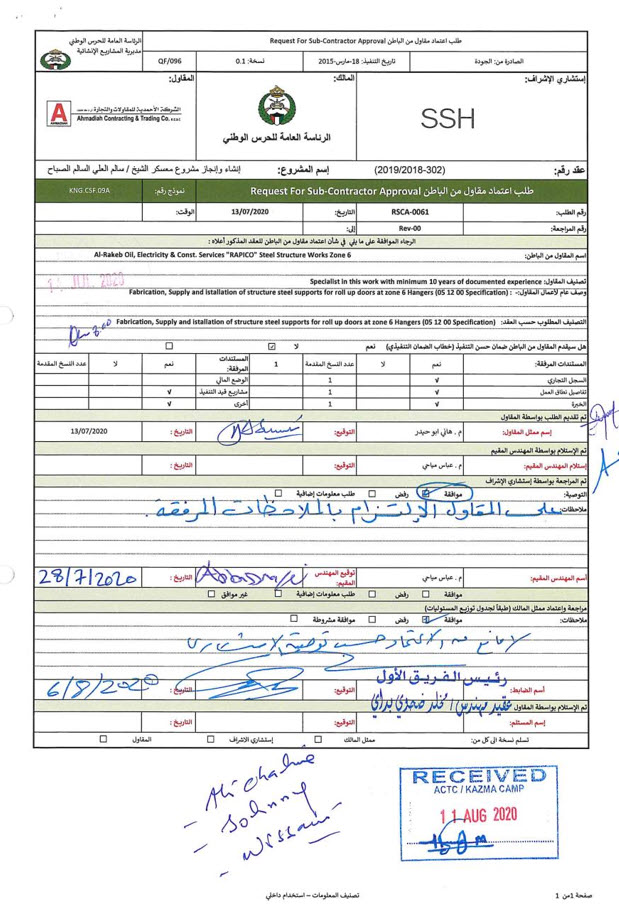 الرئاسة العامة للحرس الوطني
مديرية المشاريع الإنشائية
طلب اعتماد مقاول من الباطن Request For Sub-Contractor Approval
الصادرة من: الجودة
تاريخ التنفيذ: 18-مارس-2015
نسخة: 0.1
QF/096
إستشاري الإشراف:
المالك:
المقاول:
SSH
الرئاسة العامة للحرس الوطني
الشركة الأحمدية للمقاولات والتجارة
Ahmadiah Contracting & Trading Co.
عقد رقم: (2019/2018-302)
إسم المشروع: إنشاء وإنجاز مشروع معسكر الشيخ / سالم العلي السالم الصباح
طلب اعتماد مقاول من الباطن Request For Sub-Contractor Approval
نموذج رقم: KNG.CSF.09A
رقم الطلب: RSCA-0061
التاريخ: 13/07/2020
الوقت:
رقم المراجعة: Rev-00
إلى:
الرجاء الموافقة على ما يلي في شأن اعتماد مقاول من الباطن للعقد المذكور أعلاه :
اسم المقاول من الباطن: Al-Rakeb Oil, Electricity & Const. Services "RAPICO" Steel Structure Works Zone 6
JUL 2020
تصنيف المقاول: Specialist in this work with minimum 10 years of documented experience
وصف عام لأعمال المقاول: Fabrication, Supply and istallation of structure steel supports for roll up doors at zone 6 Hangers (05 12 00 Specification)
التصنيف المطلوب حسب العقد: Fabrication, Supply and istallation of structure steel supports for roll up doors at zone 6 Hangers (05 12 00 Specification)
هل سيقدم المقاول من الباطن ضمان حسن التنفيذ (خطاب الضمان التنفيذي) نعم ☑ لا ☐
المستندات المرفقة: نعم لا عدد النسخ المقدمة 1 المستندات المرفقة: نعم لا عدد النسخ المقدمة
السجل التجاري √ 1 الوضع المالي
تفاصيل نطاق العمل √ 1 مشاريع قيد التنفيذ √
الخبرة √ 1 أخرى √
تم تقديم الطلب بواسطة المقاول
إسم ممثل المقاول: م . هاني ابو حيدر التوقيع: التاريخ : 13/07/2020
تم الإستلام بواسطة المهندس المقيم
إستلام المهندس المقيم: م . عباس مياحي التوقيع: التاريخ :
تم المراجعة بواسطة إستشاري الإشراف
التوصية: موافقة ☑ رفض ☐ طلب معلومات إضافية ☐
ملاحظات: على المقاول الإلتزام بالملاحظات المرفقة.
أسم المهندس المقيم: م . عباس مياحي توقيع المهندس المقيم: التاريخ : 28/7/2020
موافقة ☐ رفض ☐ طلب معلومات إضافية ☐ غير موافق ☐
مراجعة واعتماد ممثل المالك (طبقاً لجدول توزيع المسئوليات)
ملاحظات: موافقة ☑ رفض ☐ موافقة مشروطة ☐
لا مانع من الاعتماد حسب توصية الاستشاري
رئيس الفريق الأول
أسم الضابط: التوقيع: التاريخ : 6/8/2020
تم الإستلام بواسطة المقاول
إسم المستلم: التوقيع: التاريخ :
تسلم نسخة الى كل من: ممثل المالك ☐ إستشاري الاشراف ☐ المقاول ☐
- Johnny
- Wissam
RECEIVED
ACTC / KAZMA CAMP
11 AUG 2020
تصنيف المعلومات – استخدام داخلي
صفحة 1 من 1